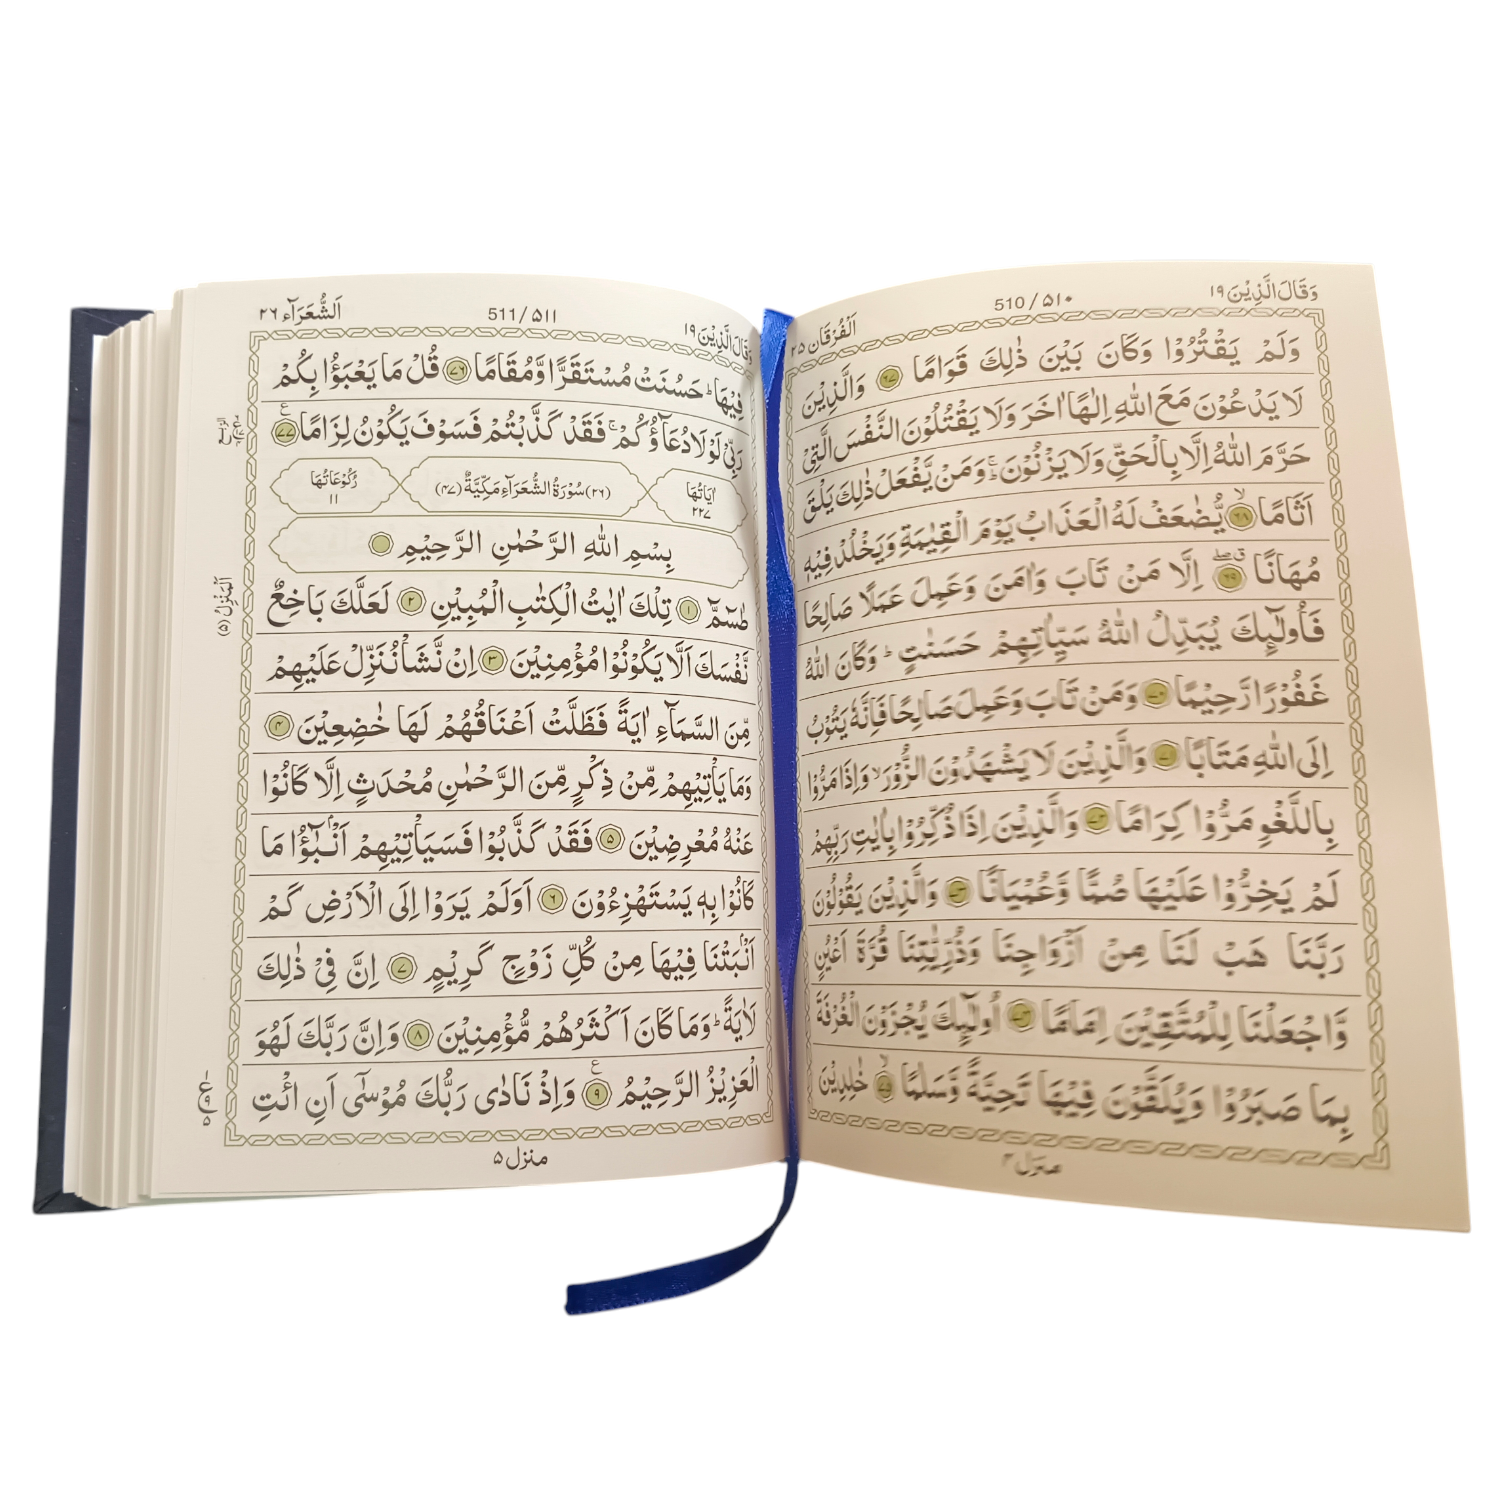 وَقَالَ الَّذِيْنَ ١٩
510 / ٥١٠
اَلْفُرْقَان ٢٥
وَلَمْ يَقْتُرُوْا وَكَانَ بَيْنَ ذٰلِكَ قَوَامًا ٦٧ وَالَّذِيْنَ
لَا يَدْعُوْنَ مَعَ اللّٰهِ اِلٰهًا اٰخَرَ وَلَا يَقْتُلُوْنَ النَّفْسَ الَّتِيْ
حَرَّمَ اللّٰهُ اِلَّا بِالْحَقِّ وَلَا يَزْنُوْنَ ۚ وَمَنْ يَّفْعَلْ ذٰلِكَ يَلْقَ
اَثَامًا ۙ ٦٨ يُّضٰعَفْ لَهُ الْعَذَابُ يَوْمَ الْقِيٰمَةِ وَيَخْلُدْ فِيْهٖ
مُهَانًا ٦٩ اِلَّا مَنْ تَابَ وَاٰمَنَ وَعَمِلَ عَمَلًا صَالِحًا
فَاُولٰٓئِكَ يُبَدِّلُ اللّٰهُ سَيِّاٰتِهِمْ حَسَنٰتٍ ؕ وَكَانَ اللّٰهُ
غَفُوْرًا رَّحِيْمًا ٧٠ وَمَنْ تَابَ وَعَمِلَ صَالِحًا فَاِنَّهٗ يَتُوْبُ
اِلَى اللّٰهِ مَتَابًا ٧١ وَالَّذِيْنَ لَا يَشْهَدُوْنَ الزُّوْرَ ۙ وَاِذَا مَرُّوْا
بِاللَّغْوِ مَرُّوْا كِرَامًا ٧٢ وَالَّذِيْنَ اِذَا ذُكِّرُوْا بِاٰيٰتِ رَبِّهِمْ
لَمْ يَخِرُّوْا عَلَيْهَا صُمًّا وَّعُمْيَانًا ٧٣ وَالَّذِيْنَ يَقُوْلُوْنَ
رَبَّنَا هَبْ لَنَا مِنْ اَزْوَاجِنَا وَذُرِّيّٰتِنَا قُرَّةَ اَعْيُنٍ
وَّاجْعَلْنَا لِلْمُتَّقِيْنَ اِمَامًا ٧٤ اُولٰٓئِكَ يُجْزَوْنَ الْغُرْفَةَ
بِمَا صَبَرُوْا وَيُلَقَّوْنَ فِيْهَا تَحِيَّةً وَّسَلٰمًا ۙ ٧٥ خٰلِدِيْنَ
منزل ٤
وَقَالَ الَّذِيْنَ ١٩
511 / ٥١١
اَلشُّعَرَآء ٢٦
فِيْهَا ؕ حَسُنَتْ مُسْتَقَرًّا وَّمُقَامًا ٧٦ قُلْ مَا يَعْبَؤُا بِكُمْ
رَبِّيْ لَوْلَا دُعَآؤُكُمْ ۚ فَقَدْ كَذَّبْتُمْ فَسَوْفَ يَكُوْنُ لِزَامًا ٧٧
اٰيَاتُهَا ٢٢٧ (٢٦) سُوْرَةُ الشُّعَرَآءِ مَكِّيَّةٌ (٤٧) رُكُوْعَاتُهَا ١١
بِسْمِ اللّٰهِ الرَّحْمٰنِ الرَّحِيْمِ
طٰسٓمّٓ ١ تِلْكَ اٰيٰتُ الْكِتٰبِ الْمُبِيْنِ ٢ لَعَلَّكَ بَاخِعٌ
نَّفْسَكَ اَلَّا يَكُوْنُوْا مُؤْمِنِيْنَ ٣ اِنْ نَّشَاْ نُنَزِّلْ عَلَيْهِمْ
مِّنَ السَّمَآءِ اٰيَةً فَظَلَّتْ اَعْنَاقُهُمْ لَهَا خٰضِعِيْنَ ٤
وَمَا يَاْتِيْهِمْ مِّنْ ذِكْرٍ مِّنَ الرَّحْمٰنِ مُحْدَثٍ اِلَّا كَانُوْا
عَنْهُ مُعْرِضِيْنَ ٥ فَقَدْ كَذَّبُوْا فَسَيَاْتِيْهِمْ اَنْۢبٰٓؤُا مَا
كَانُوْا بِهٖ يَسْتَهْزِءُوْنَ ٦ اَوَلَمْ يَرَوْا اِلَى الْاَرْضِ كَمْ
اَنْۢبَتْنَا فِيْهَا مِنْ كُلِّ زَوْجٍ كَرِيْمٍ ٧ اِنَّ فِيْ ذٰلِكَ
لَاٰيَةً ؕ وَمَا كَانَ اَكْثَرُهُمْ مُّؤْمِنِيْنَ ٨ وَاِنَّ رَبَّكَ لَهُوَ
الْعَزِيْزُ الرَّحِيْمُ ٩ وَاِذْ نَادٰى رَبُّكَ مُوْسٰٓى اَنِ ائْتِ
منزل ٥
اَلْمَنْزِلُ (٥)
ع